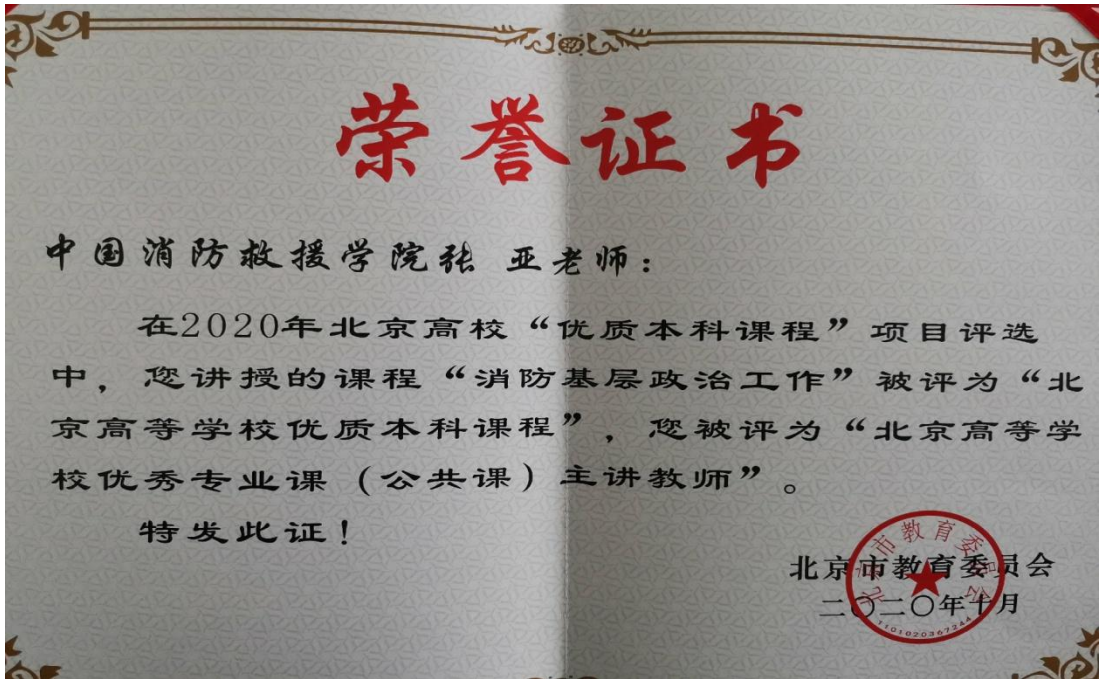 荣誉证书
中国消防救援学院张 亚老师：
在2020年北京高校“优质本科课程”项目评选
中，您讲授的课程“消防基层政治工作”被评为“北
京高等学校优质本科课程”，您被评为“北京高等学
校优秀专业课（公共课）主讲教师”。
特发此证！
北京市教育委员会
二〇二〇年十月
北京市教育委员会
1101020367244